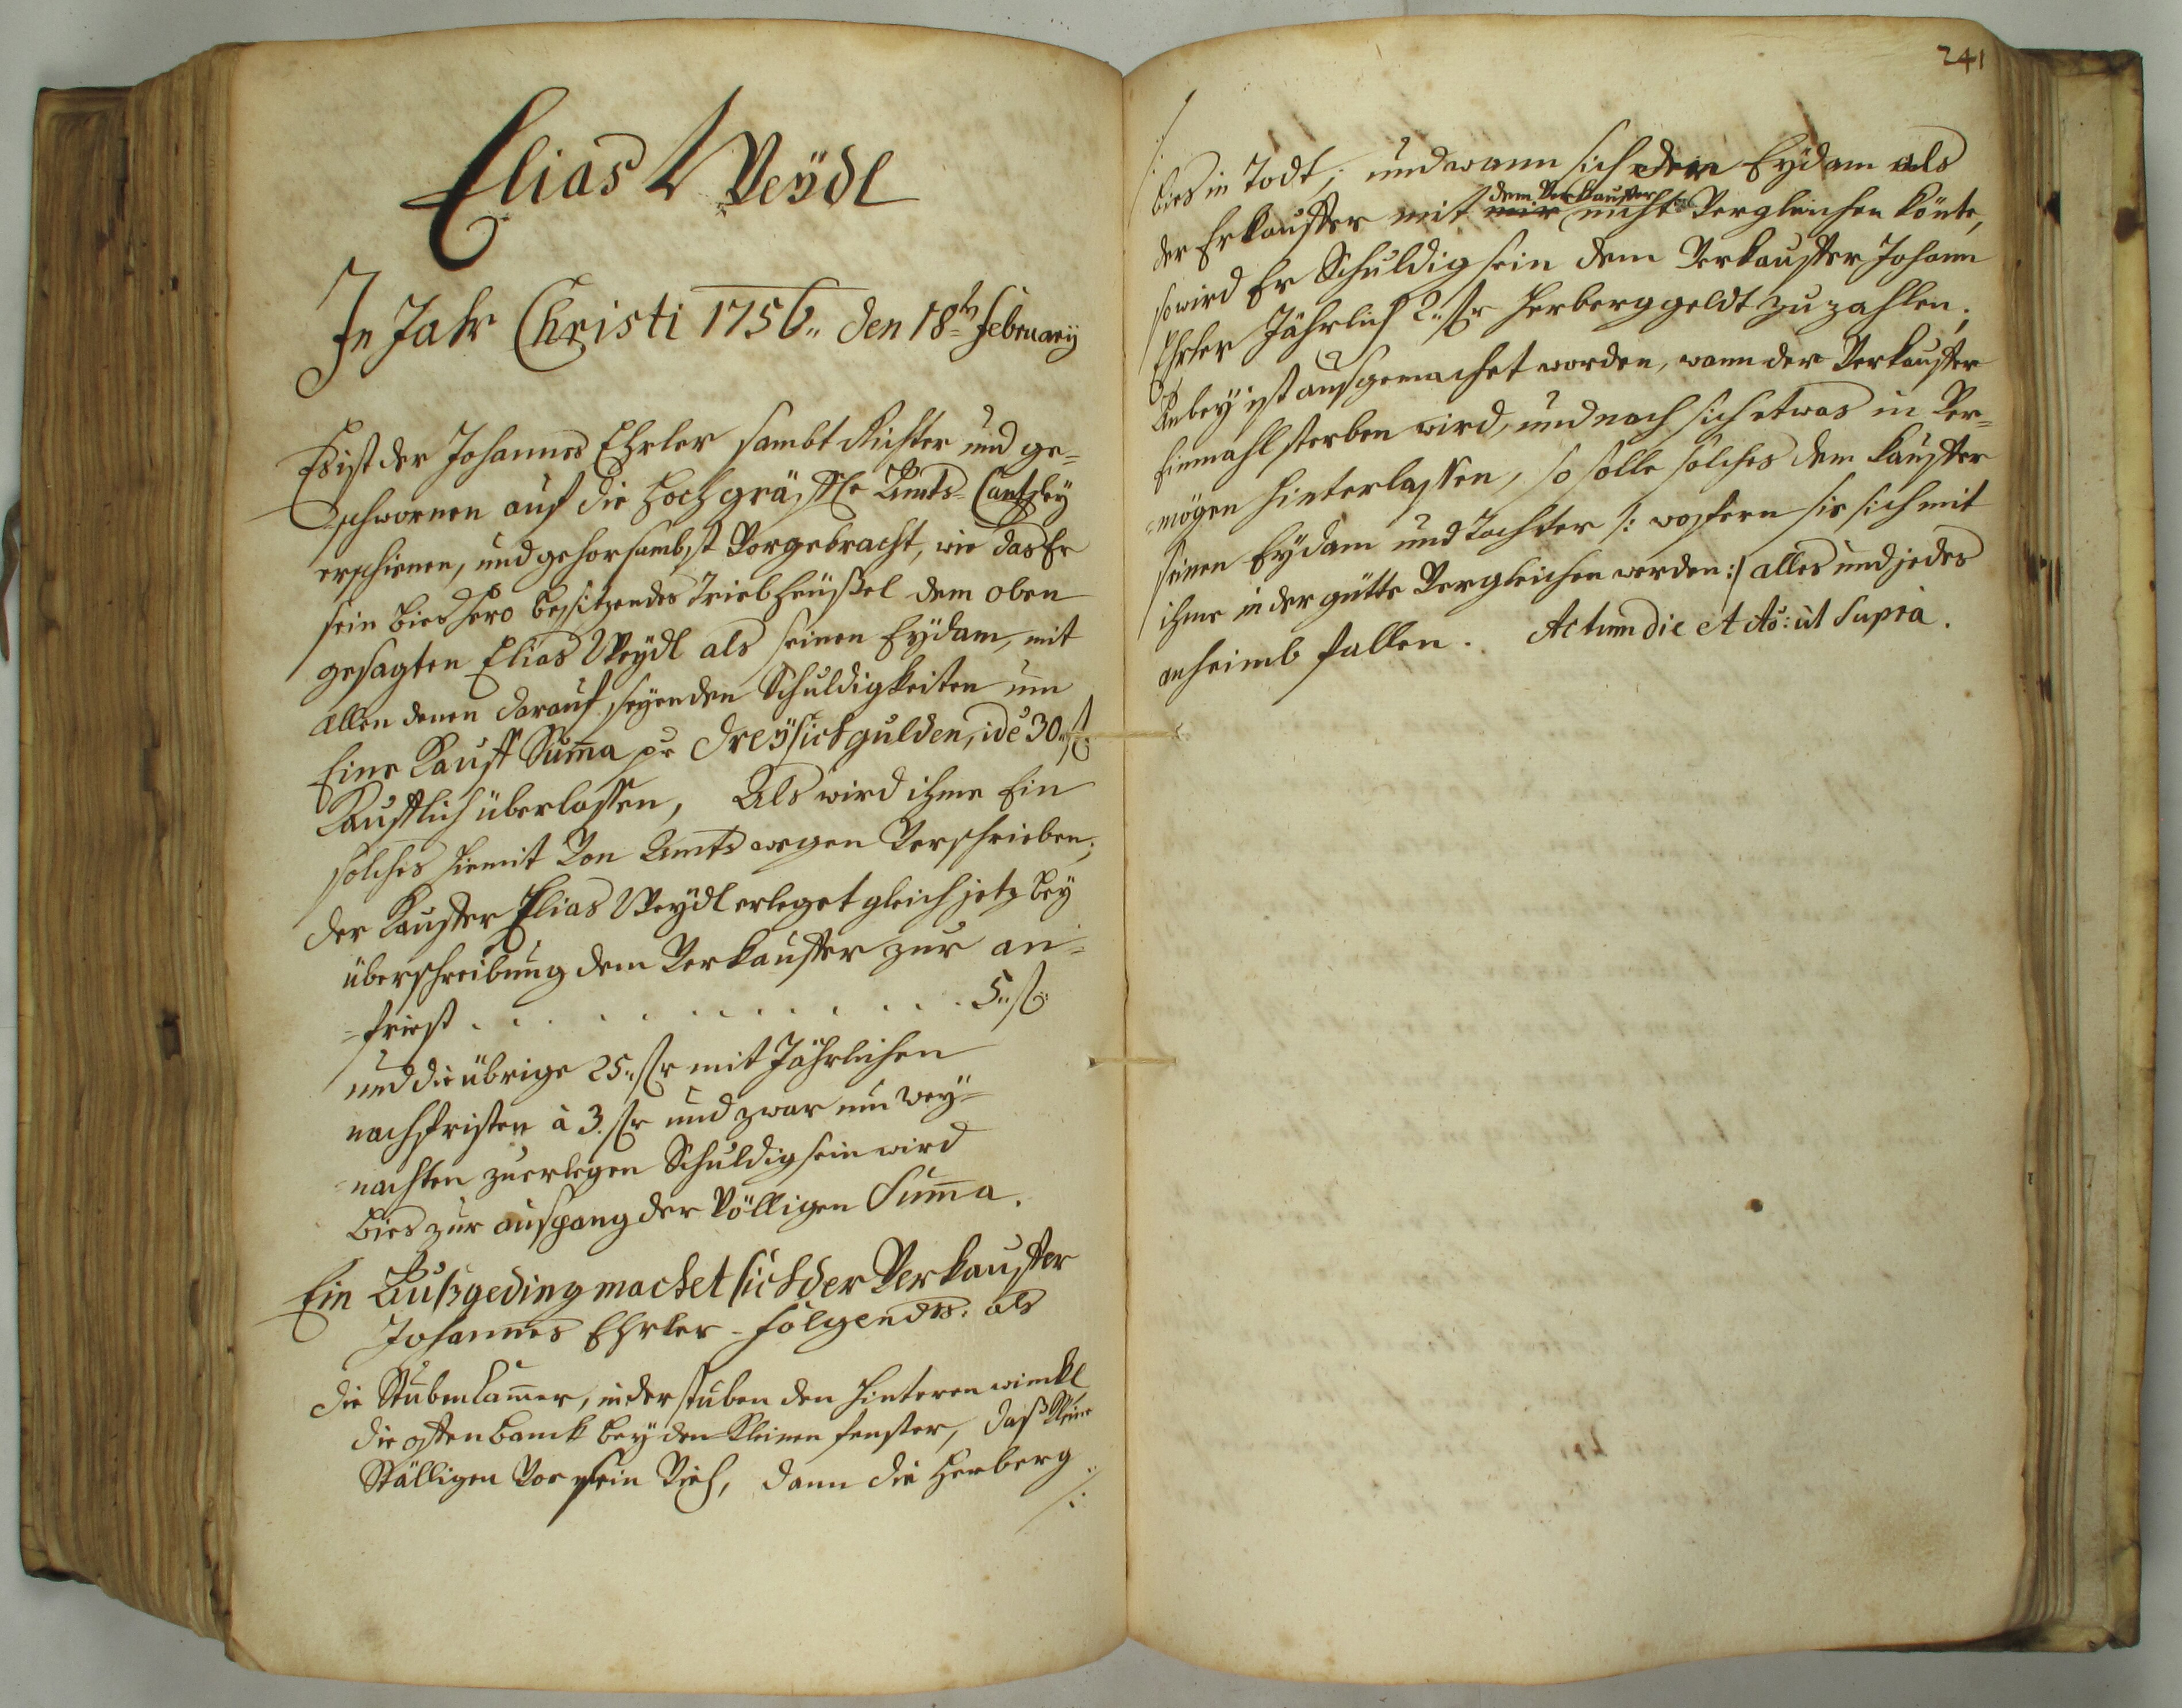 Elias Weÿdl
In Jahr Christi 1756.. den 18ten februarÿ
Es ist der Johannes Ehrler sambt Richter und ge=
schwornen auf die Hochgräffl: Ambts=Cantzleÿ
erschienen, und gehorsambst Vorgebracht, wie das Er
sein bies hero besitzendes Triebheüßel dem oben
gesagten Elias Weÿdl als seinen Eÿdam, mit
allen denen darauf seÿenden Schuldigkeiten um
Eine Kauff Suma pr dreÿsich gulden, ide 30.. fl
Kaufflich überlassen, Als wird ihme Ein
solches hiemit Von Ambts wegen Verschrieben;
der Kauffer Elias Weÿdl erleget gleich jetz beÿ
überschreibung dem Verkauffer zur an=
=friest . . . . . . . . . . . . 5.. fl:
und die übrige 25.. fr mit Jährlichen
nachfristen à 3. fr und zwar um Weÿ=
nachten zuerlegen Schuldig sein wird
bies zur ausgang der Völligen Suma.
Ein Außgeding machet sich der Verkauffer
Johannes Ehrler folgendes: als
die Stubenkamer, in der stuben den hinteren winckl
die offenbanck beÿ den kleinen fenster, daß kleine
Ställigen Vor sein Vieh, dann die Herberg
/:
241
/:
bies in Todt; und wann sich der Eÿdam als
der Erkauffer mit mir dem Verkauffer nicht Vergleichen könte,
so wird Er Schuldig sein dem Verkauffer Johann
Ehrler Jährlich 2.. fr Herberggeldt zu zahlen;
Anbeÿ ist ausgemachet worden, wann der Verkauffer
Einmahl sterben wird, und nach sich etwas in Ver=
=mögen hinterlassen, so solle solches dem kauffer
seinen Eÿdam und Tochter /: wofern sie sich mit
ihme in der gütte Vergleichen werden :/ alles und jedes
anheimb fallen. Actum die et Ao: ut Supra.